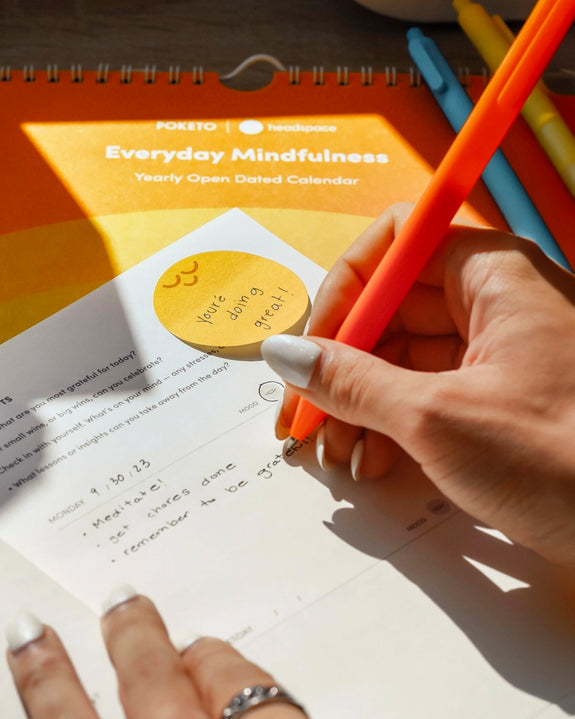 POKETO | headspace
Everyday Mindfulness
Yearly Open Dated Calendar
you're
doing
great!
TS
hat are you most grateful for today?
small wins, or big wins, can you celebrate?
Check in with yourself. What's on your mind – any stresses,
• What lessons or insights can you take away from the day?
MOOD
MONDAY 9/30/23
• Meditate!
• get chores done
• remember to be grateful!
MOOD